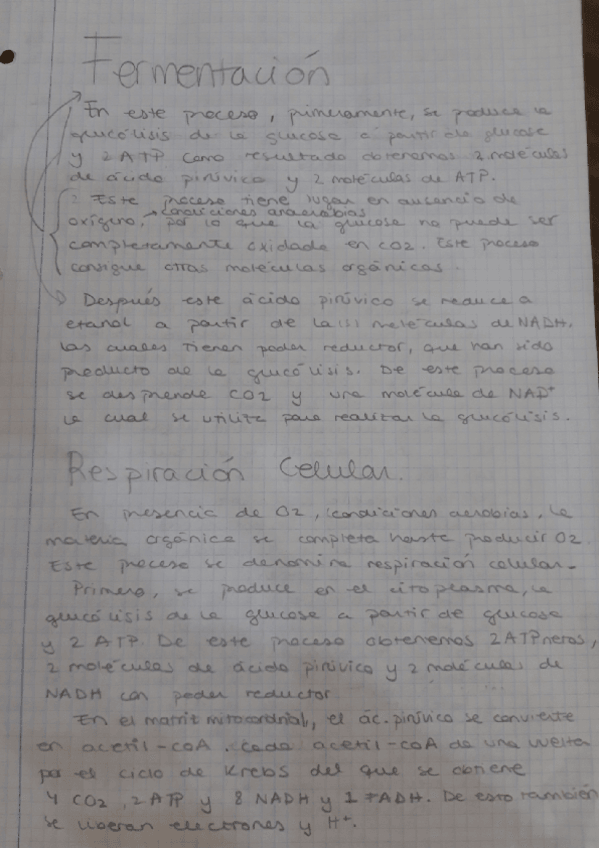 Fermentación
En este proceso, primeramente, se produce la
glucólisis de la glucosa a partir de glucosa
y 2 ATP como resultado obtenemos 2 moléculas
de ácido pirúvico y 2 moléculas de ATP.
Este proceso tiene lugar en ausencia de
condiciones anaerobias
oxígeno, por lo que la glucosa no puede ser
completamente oxidada en CO2. Este proceso
consigue otras moléculas orgánicas.
Después este ácido pirúvico se reduce a
etanol a partir de las moléculas de NADH,
las cuales tienen poder reductor, que han sido
producto de la glucólisis. De este proceso
se desprende CO2 y una molécula de NAD+
la cual se utiliza para realizar la glucólisis.
Respiración Celular.
En presencia de O2, (condiciones aerobias, la
materia orgánica se completa hasta producir O2.
Este proceso se denomina respiración celular.
Primero, se produce en el citoplasma, la
glucólisis de la glucosa a partir de glucosa
y 2 ATP. De este proceso obtenemos 2 ATP netos,
2 moléculas de ácido pirúvico y 2 moléculas de
NADH con poder reductor
En el matriz mitocondrial, el ác. pirúvico se convierte
en acetil-coA. Cada acetil-coA da una vuelta
por el ciclo de Krebs del que se obtiene
4 CO2, 2 ATP y 8 NADH y 1 FADH. De esto también
se liberan electrones y H+.